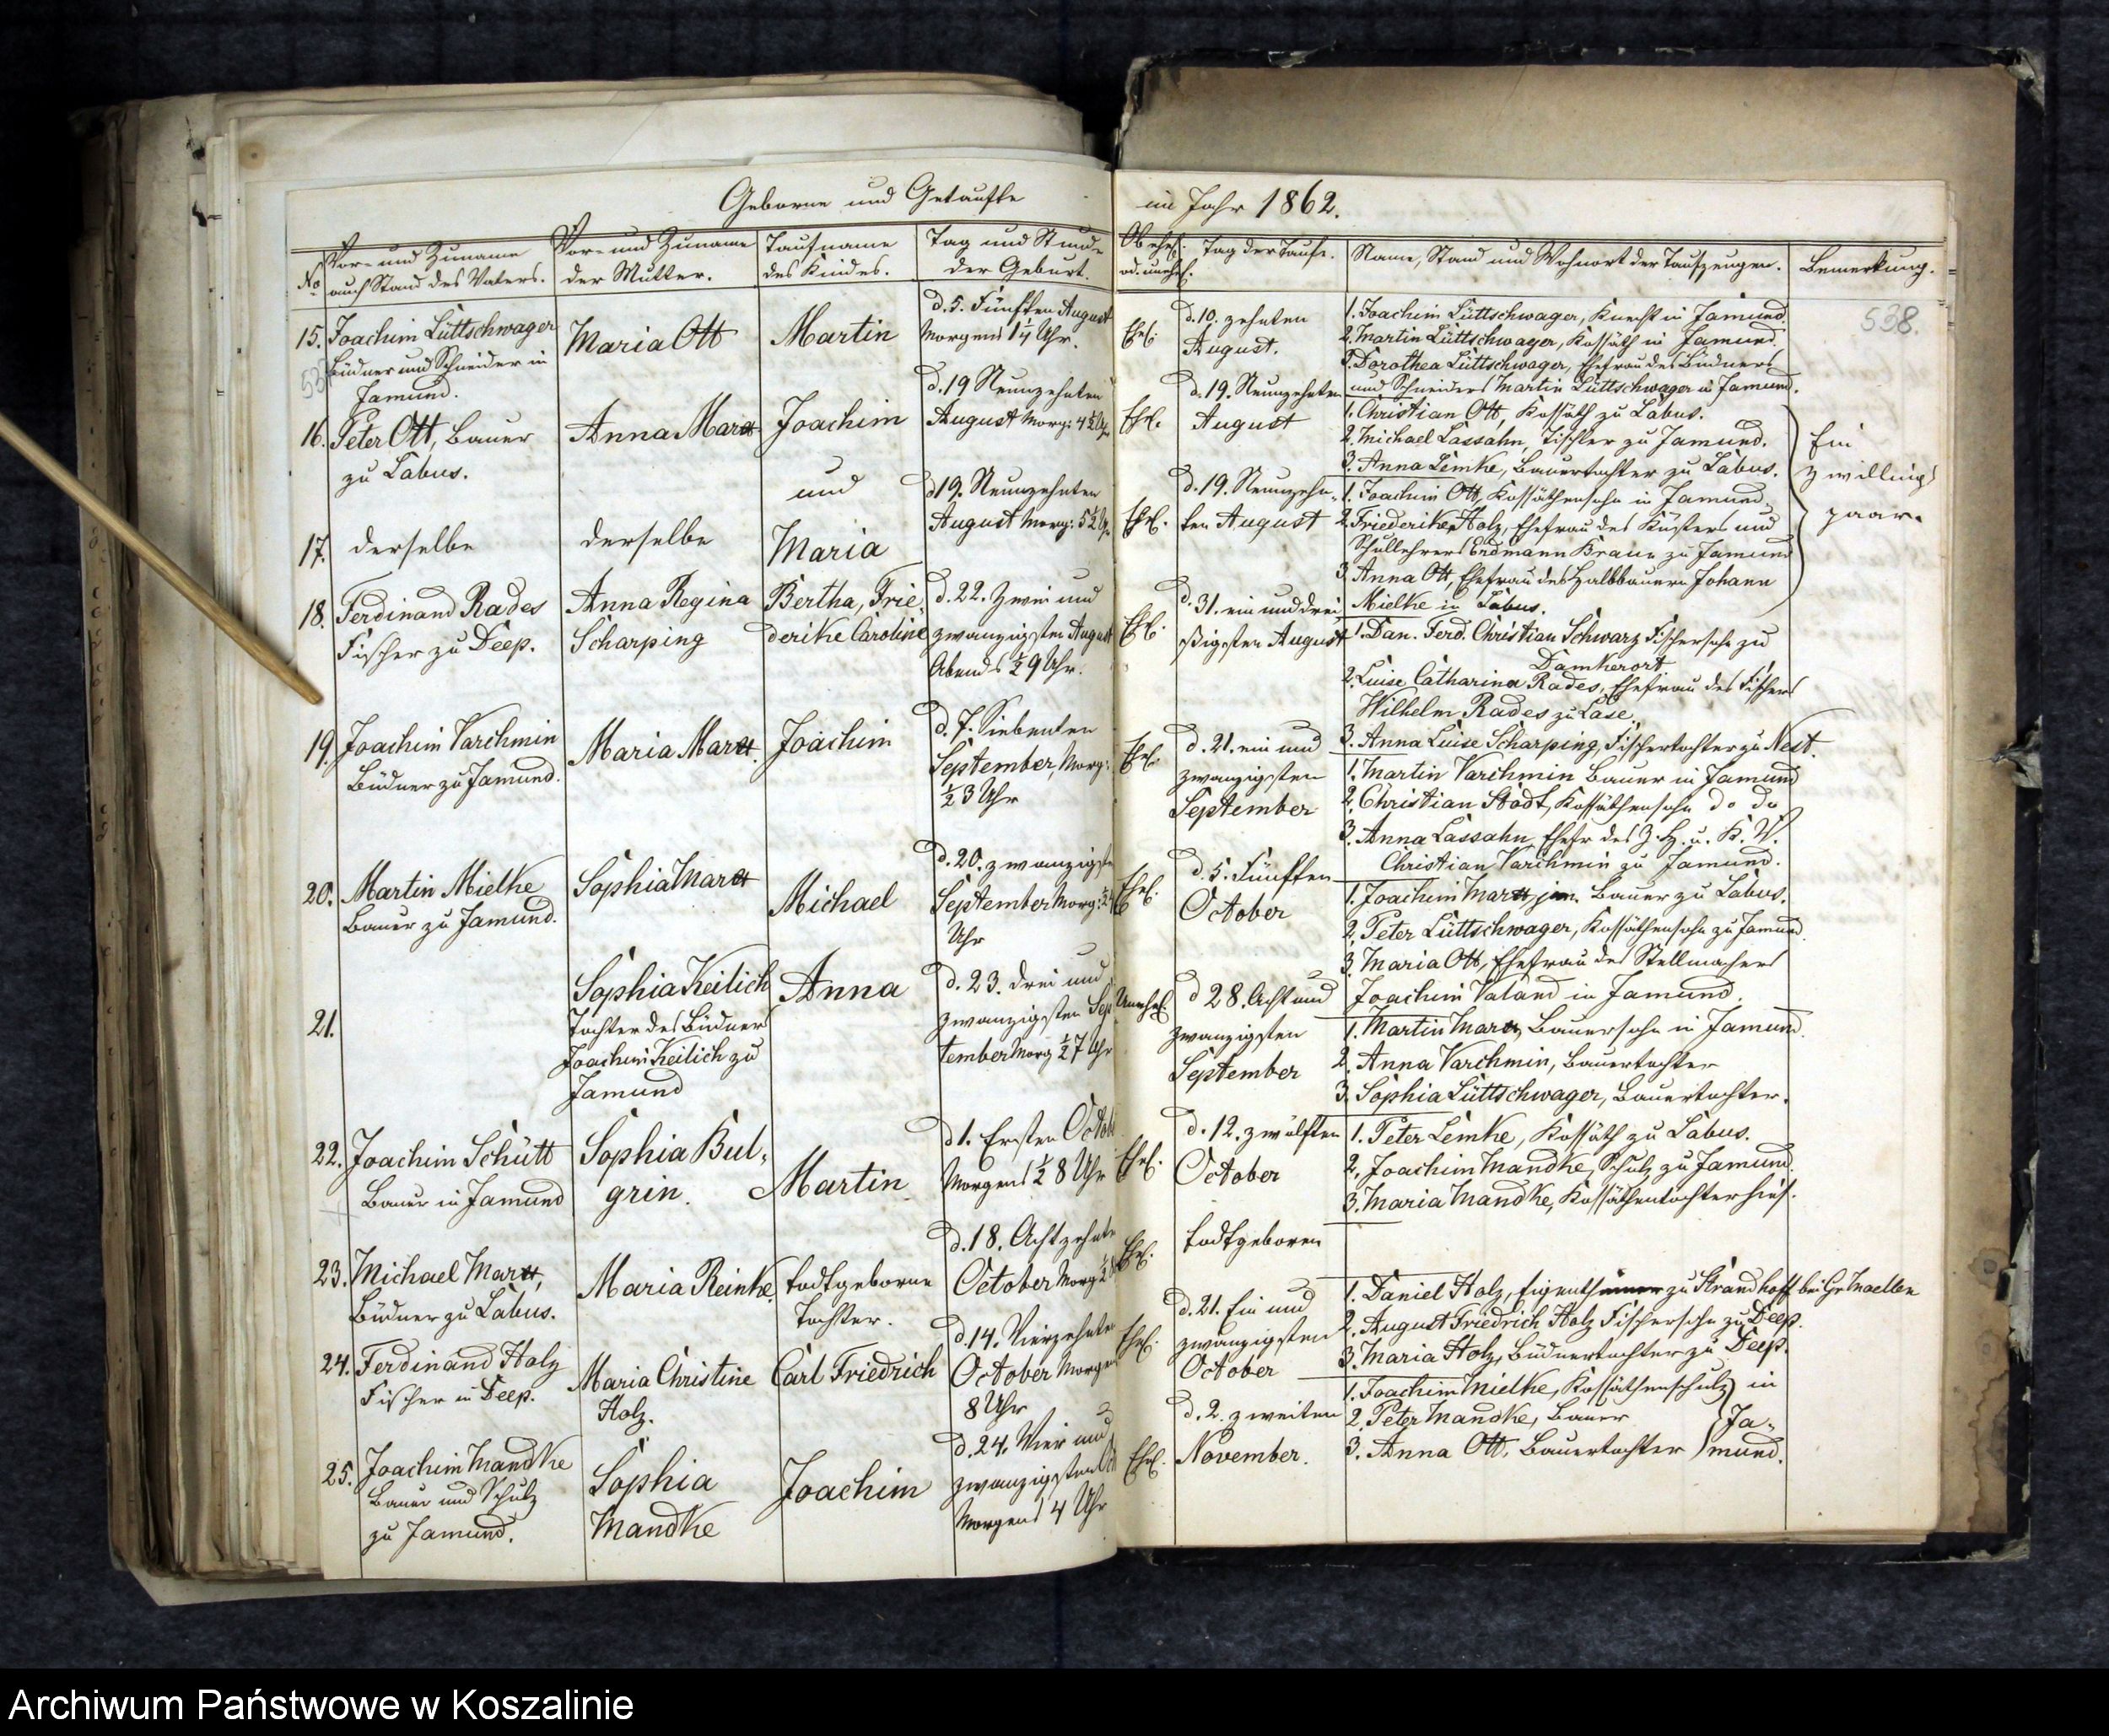 Geborne und Getaufte
No
Vor- und Zuname
auch Stand des Vaters.
Vor- und Zuname
der Mutter.
Taufname
des Kindes.
Tag und Stunde
der Geburt.
15. Joachim Lüttschwager
Büdner und Schneider in
Jamund.
Maria Ott
Martin
d. 5. Fünften August
Morgens Uhr.
16. Peter Ott, Bauer
zu Labus.
Anna Marx
Joachim
und
d. 19 Neunzehnten
August Morg: 4½
17. derselbe
derselbe
Maria
d 19. Neunzehnten
August Morg: 5½
18. Ferdinand Rades
Fischer zu Deep.
Anna Regina
Scharping
Bertha, Frie-
derike Caroline
d. 22. Zwei und
zwanzigsten August
Abends ½9 Uhr.
19. Joachim Varchmin
Büdner zu Jamund.
Maria Marx
Joachim
d. 7. Siebenten
September, Morg:
½3 Uhr
20. Martin Mielke
Bauer zu Jamund.
Sophia Marx
Michael
d. 20. zwanzigste
September Morg:
Uhr
21.
Sophia Keilich
Tochter des Büdners
Joachim Keilich zu
Jamund
Anna
d. 23. drei und
zwanzigsten Sep
tember Morg ½7 Uhr
22. Joachim Schütt
Bauer in Jamund
Sophia Bul-
grin.
Martin
d 1. Ersten Octob
Morgens ½8 Uhr
23. Michael Marx,
Büdner zu Labus.
Maria Reinke
todtgeborne
Tochter.
d. 18. Achtzehnte
October Morg
24. Ferdinand Holz
Fischer in Deep.
Maria Christine
Holz.
Carl Friedrich
d. 14. Vierzehnte
October Morgen
8 Uhr
25. Joachim Mandke
Bauer und Schulz
zu Jamund.
Sophia
Mandke
Joachim
d. 24. Vier und
zwanzigsten
Morgens 4 Uhr
im Jahr 1862.
Ob ehel.
od. unehel.
Tag der Taufe.
Name, Stand und Wohnort der Taufzeugen.
Bemerkung.
538.
Ehel.
d. 10. zehnten
August.
1. Joachim Lüttschwager, Knecht in Jamund.
2. Martin Lüttschwager, Kossäth in Jamund.
3. Dorothea Lüttschwager, Ehefrau des Büdners
und Schneiders Martin Lüttschwager in Jamund.
Ehel.
d. 19. Neunzehnten
August
1. Christian Ott, Kossäth zu Labus.
2. Michael Lassahn, Tischler zu Jamund.
3. Anna Lemke, Bauertochter zu Labus.
Ein
Zwillings
paar.
Ehel.
d. 19. Neunzehn-
ten August
1. Joachim Ott, Kossäthensohn in Jamund.
2. Friederike Holz, Ehefrau des Küsters und
Schullehrers Erdmann Kraus zu Jamund
3. Anna Ott, Ehefrau des Halbbauern Johann
Mielke in Labus.
Ehel.
d. 31. ein und drei
ßigsten August
1. Dan. Ferd. Christian Schwarz Fischersohn zu
Damkerort
2. Luise Catharina Rades, Ehefrau des Fischers
Wilhelm Rades zu Lase.
3. Anna Luise Scharping, Fischertochter zu Nest.
Ehel.
d. 21. ein und
zwanzigsten
September
1. Martin Varchmin Bauer in Jamund
2. Christian Stadt, Kossäthensohn do do
3. Anna Lassahn, Ehefr des Z. H. u. K. W.
Christian Varchmin zu Jamund.
Ehel.
d. 5. Fünften
October
1. Joachim Marx jun. Bauer zu Labus.
2. Peter Lüttschwager, Kossäthensohn zu Jamund
3. Maria Ott, Ehefrau des Stellmachers
Joachim Valand in Jamund.
Unehel.
d 28. Acht und
zwanzigsten
September
1. Martin Marx, Bauersohn in Jamund
2. Anna Varchmin, Bauertochter
3. Sophia Lüttschwager, Bauertochter.
Ehel.
d. 12. zwölften
October
1. Peter Lemke, Kossäth zu Labus.
2. Joachim Mandke, Schulz zu Jamund.
3. Maria Mandke, Kossäthentochter hies.
Ehel.
todtgeboren
Ehel.
d. 21. Ein und
zwanzigsten
October
1. Daniel Holz, Eigenthümer zu Strandhoff bei Gr Moellen
2. August Friedrich Holz Fischersohn zu Deep.
3. Maria Holz, Büdnertochter zu Deep.
Ehel.
d. 2. zweiten
November.
1. Joachim Mielke, Kossäthenschulz in
2. Peter Mandke, Bauer Ja-
3. Anna Ott, Bauertochter mund.
Archiwum Państwowe w Koszalinie